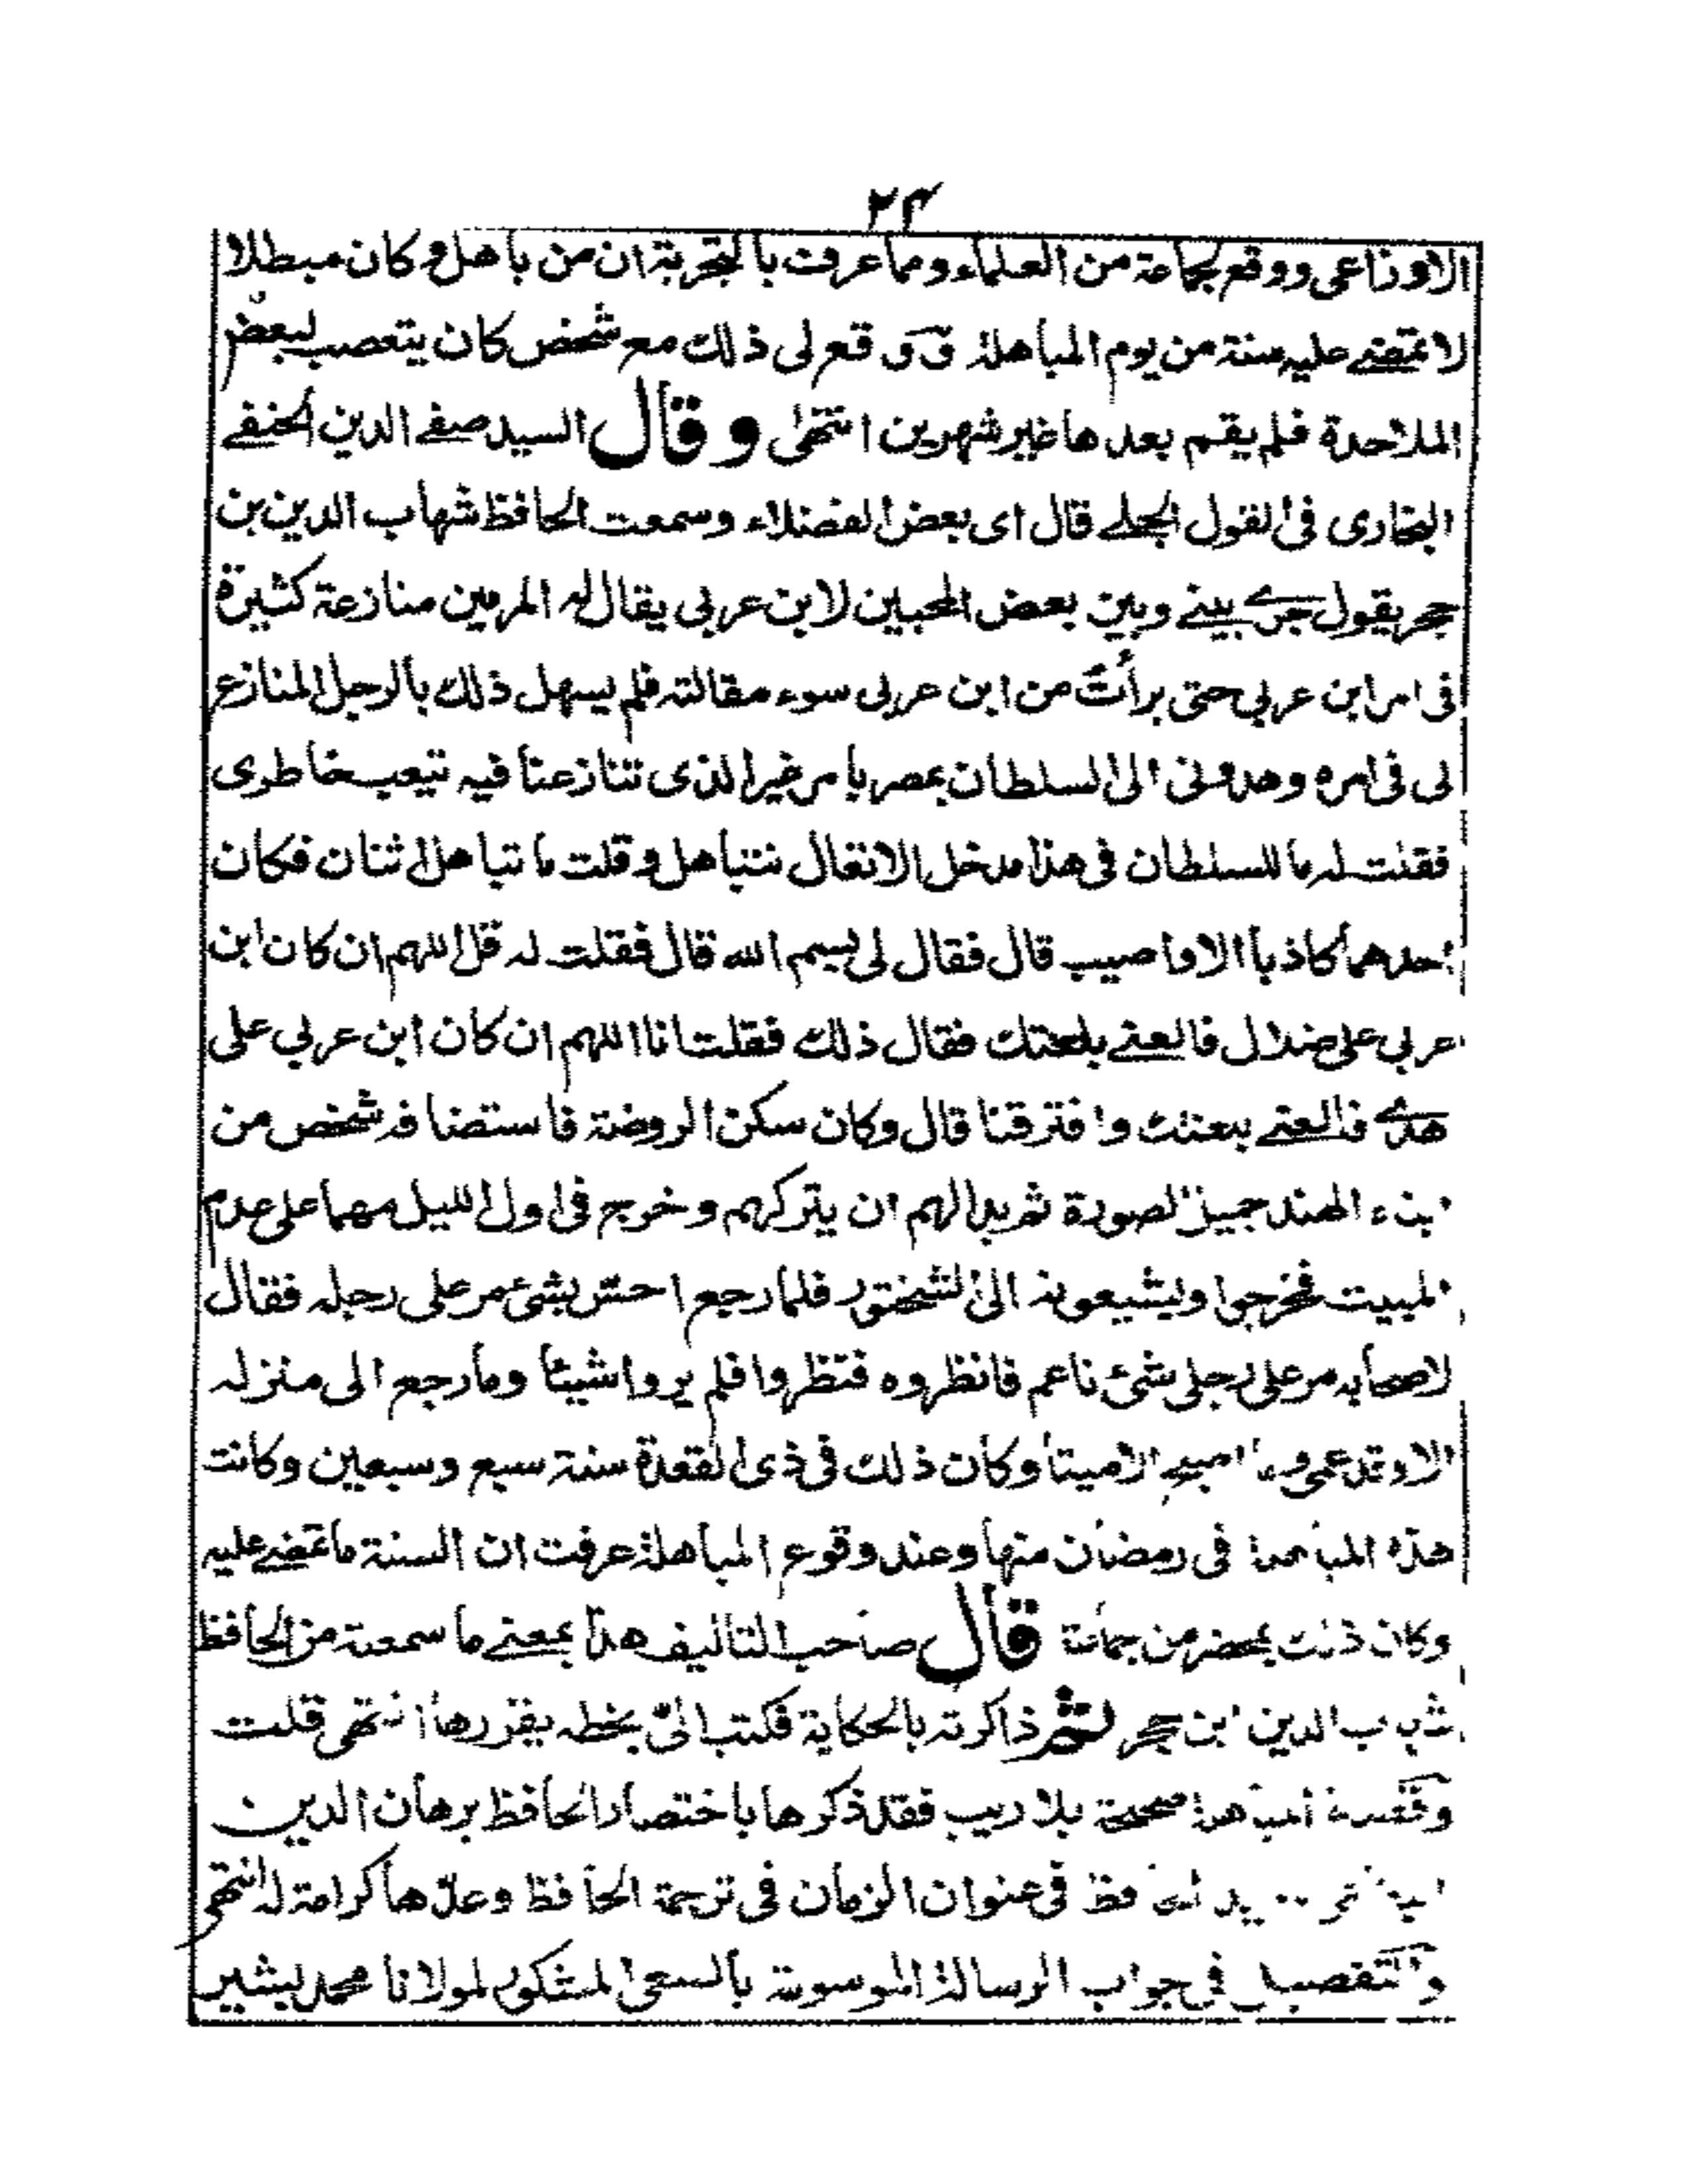 ٢٤
الاوزاعى ووقع لجماعة من العلماء ومما عرفت بالتجربة ان من باهل وكان مبطلا
لا تمضے عليه سنة من يوم المباهلة ووقع لى ذلك مع شخص كان يتعصب لبعض
الملاحدة فلم يقم بعدها غير شهرين انتهى وقال السيد صفے الدين الحنفے
البخارى فى القول الجلے قال اى بعض الفضلاء وسمعت الحافظ شهاب الدين بن
حجر يقول جرے بينے وبين بعض المحبين لابن عربى يقال له المرمين منازعة كثيرة
فى امر ابن عربي حتى برأت من ابن عربى سوء مقالته فلم يسهل ذلك بالرجل المنازع
لى فى امره وهددنى الى السلطان بمصر بامر غير الذى تنازعنا فيه تيعب خاطرى
فقلت له ما للسلطان فى هذا مدخل الا تعال نتباهل وقلت ما تباهل اثنان فكان
احدهما كاذبا الا واصيب قال فقال لى بسم الله قال فقلت له قل اللهم ان كان ابن
عربي على ضلال فالعنے بلعنتك فقال ذلك فقلت انا اللهم ان كان ابن عربي على
هدے فالعنے بلعنتك وافترقنا قال وكان سكن الروضة فاستضافه شخص من
ابناء الهند جميل الصورة ثم بدا لهم ان يتركهم وخرج فى اول الليل مهما على عدم
المبيت فخرجوا ويشيعونه الى الشختور فلما رجع احسّ بشئ مر على رجله فقال
لاصحابه مر على رجلى شئ ناعم فانظروه فنظروا فلم يروا شيئا وما رجع الى منزله
الا وقد عمى وما اصبح الا ميتا وكان ذلك فى ذى القعدة سنة سبع وسبعين وكانت
هذه المباهلة فى رمضان منها وعند وقوع المباهلة عرفت ان السنة ما تمضے عليه
وكان ذلك بمحضر من جماعة قال صاحب التاليف هذا بمعنے ما سمعته من الحافظ
شهاب الدين ابن حجر ثم ذاكرته بالحكاية فكتب الىّ بخطه يقررها انتهى قلت
وقصة المباهلة صحيحة بلا ريب فقد ذكرها باختصار الحافظ برهان الدين
الحافظ فى عنوان الزمان فى ترجمة الحافظ وعدّها كرامة له انتهى
والتفصيل فى جواب الرسالة الموسومة بالسعى المشكور لمولانا محمد بشير